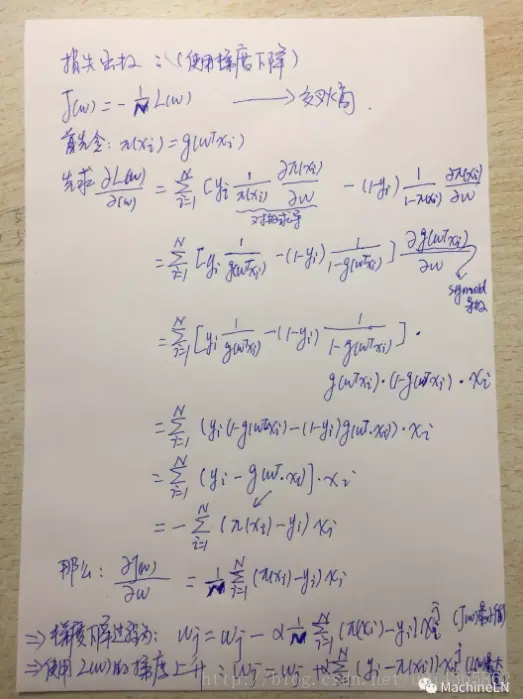 损失函数：（使用梯度下降）
J(w) = -1/N L(w) ⟶ 交叉熵.
首先令：π(xi) = g(wᵀxi)
先求 ∂L(w)/∂(w) = Σ_{i=1}^{N} [yi 1/π(xi) ∂π(xi)/∂w - (1-yi) 1/(1-π(xi)) ∂π(xi)/∂w
对log求导
= Σ_{i=1}^{N} [yi 1/g(wᵀxi) - (1-yi) 1/(1-g(wᵀxi))] ∂g(wᵀxi)/∂w
sigmoid
导数
= Σ_{i=1}^{N} [yi 1/g(wᵀxi) - (1-yi) 1/(1-g(wᵀxi))] ·
g(wᵀxi)·(1-g(wᵀxi))·xi
= Σ_{i=1}^{N} (yi(1-g(wᵀxi) - (1-yi)g(wᵀ·xi))·xi
= Σ_{i=1}^{N} (yi - g(wᵀ·xi)]·xi
= -Σ_{i=1}^{N} (π(xi)-yi) xi
那么：∂J(w)/∂w = 1/N Σ_{i=1}^{N} (π(xi)-yi) xi
⇒ 梯度下降过程为：wj = wj - α 1/N Σ_{i=1}^{N} (π(xi)-yi) xi^j (J(w)最小值)
⇒ 使用L(w)的梯度上升：wj = wj + α Σ_{i=1}^{N} (yi-π(xi))·xi^j (L(w)最大
MachineLN